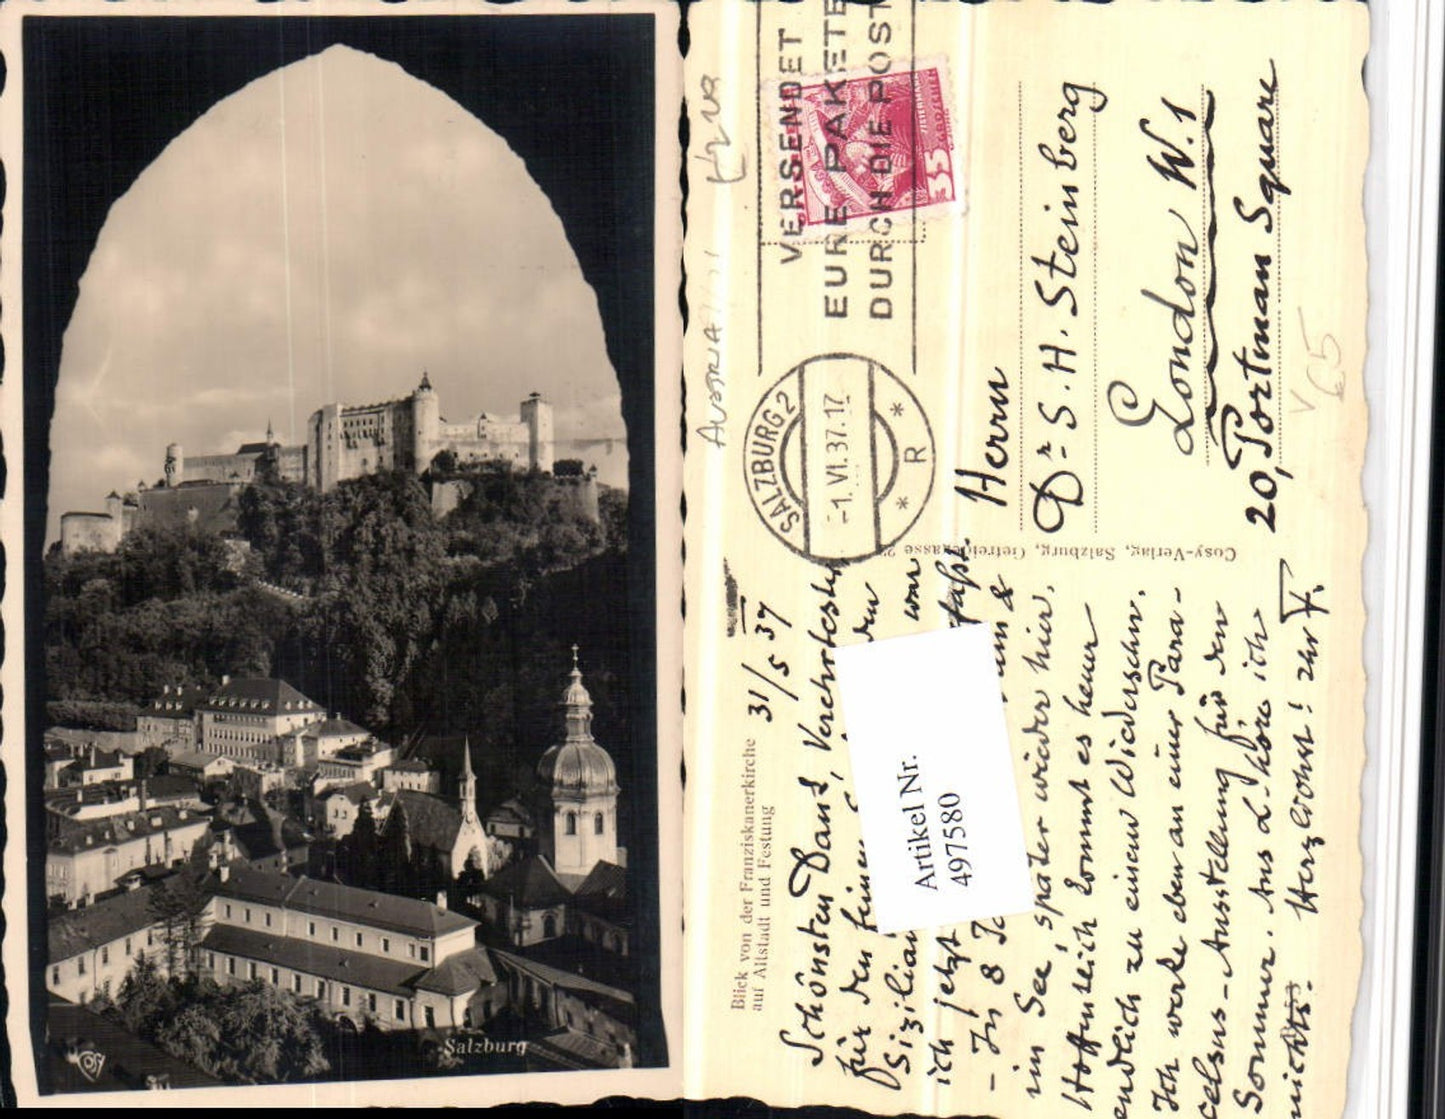 Salzburg
Blick von der Franziskanerkirche
auf Altstadt und Festung
31/5 37
Schönsten Dank, Verehrtester,
für den feinen
Sizilian war
ich jetzt faßt.
- In 8 &
im See, später wieder hier.
Hoffentlich kommt es heuer
endlich zu einem Wiederschn.
Ich werke eben an einer Para-
celsus-Ausstellung für den
Sommer. Aus L. höre ich
nichts. Herzlichst! Ihr F.
Cosy-Verlag, Salzburg, Getreidegasse 2
AUSTRIA
VERSENDET
EURE PAKETE
DURCH DIE POST
SALZBURG 2
-1.VI.37.17
* R *
35 GROSCHEN
Herrn
Dr S. H. Steinberg
London W.1
20, Portman Square
V
65
Artikel Nr.
497580